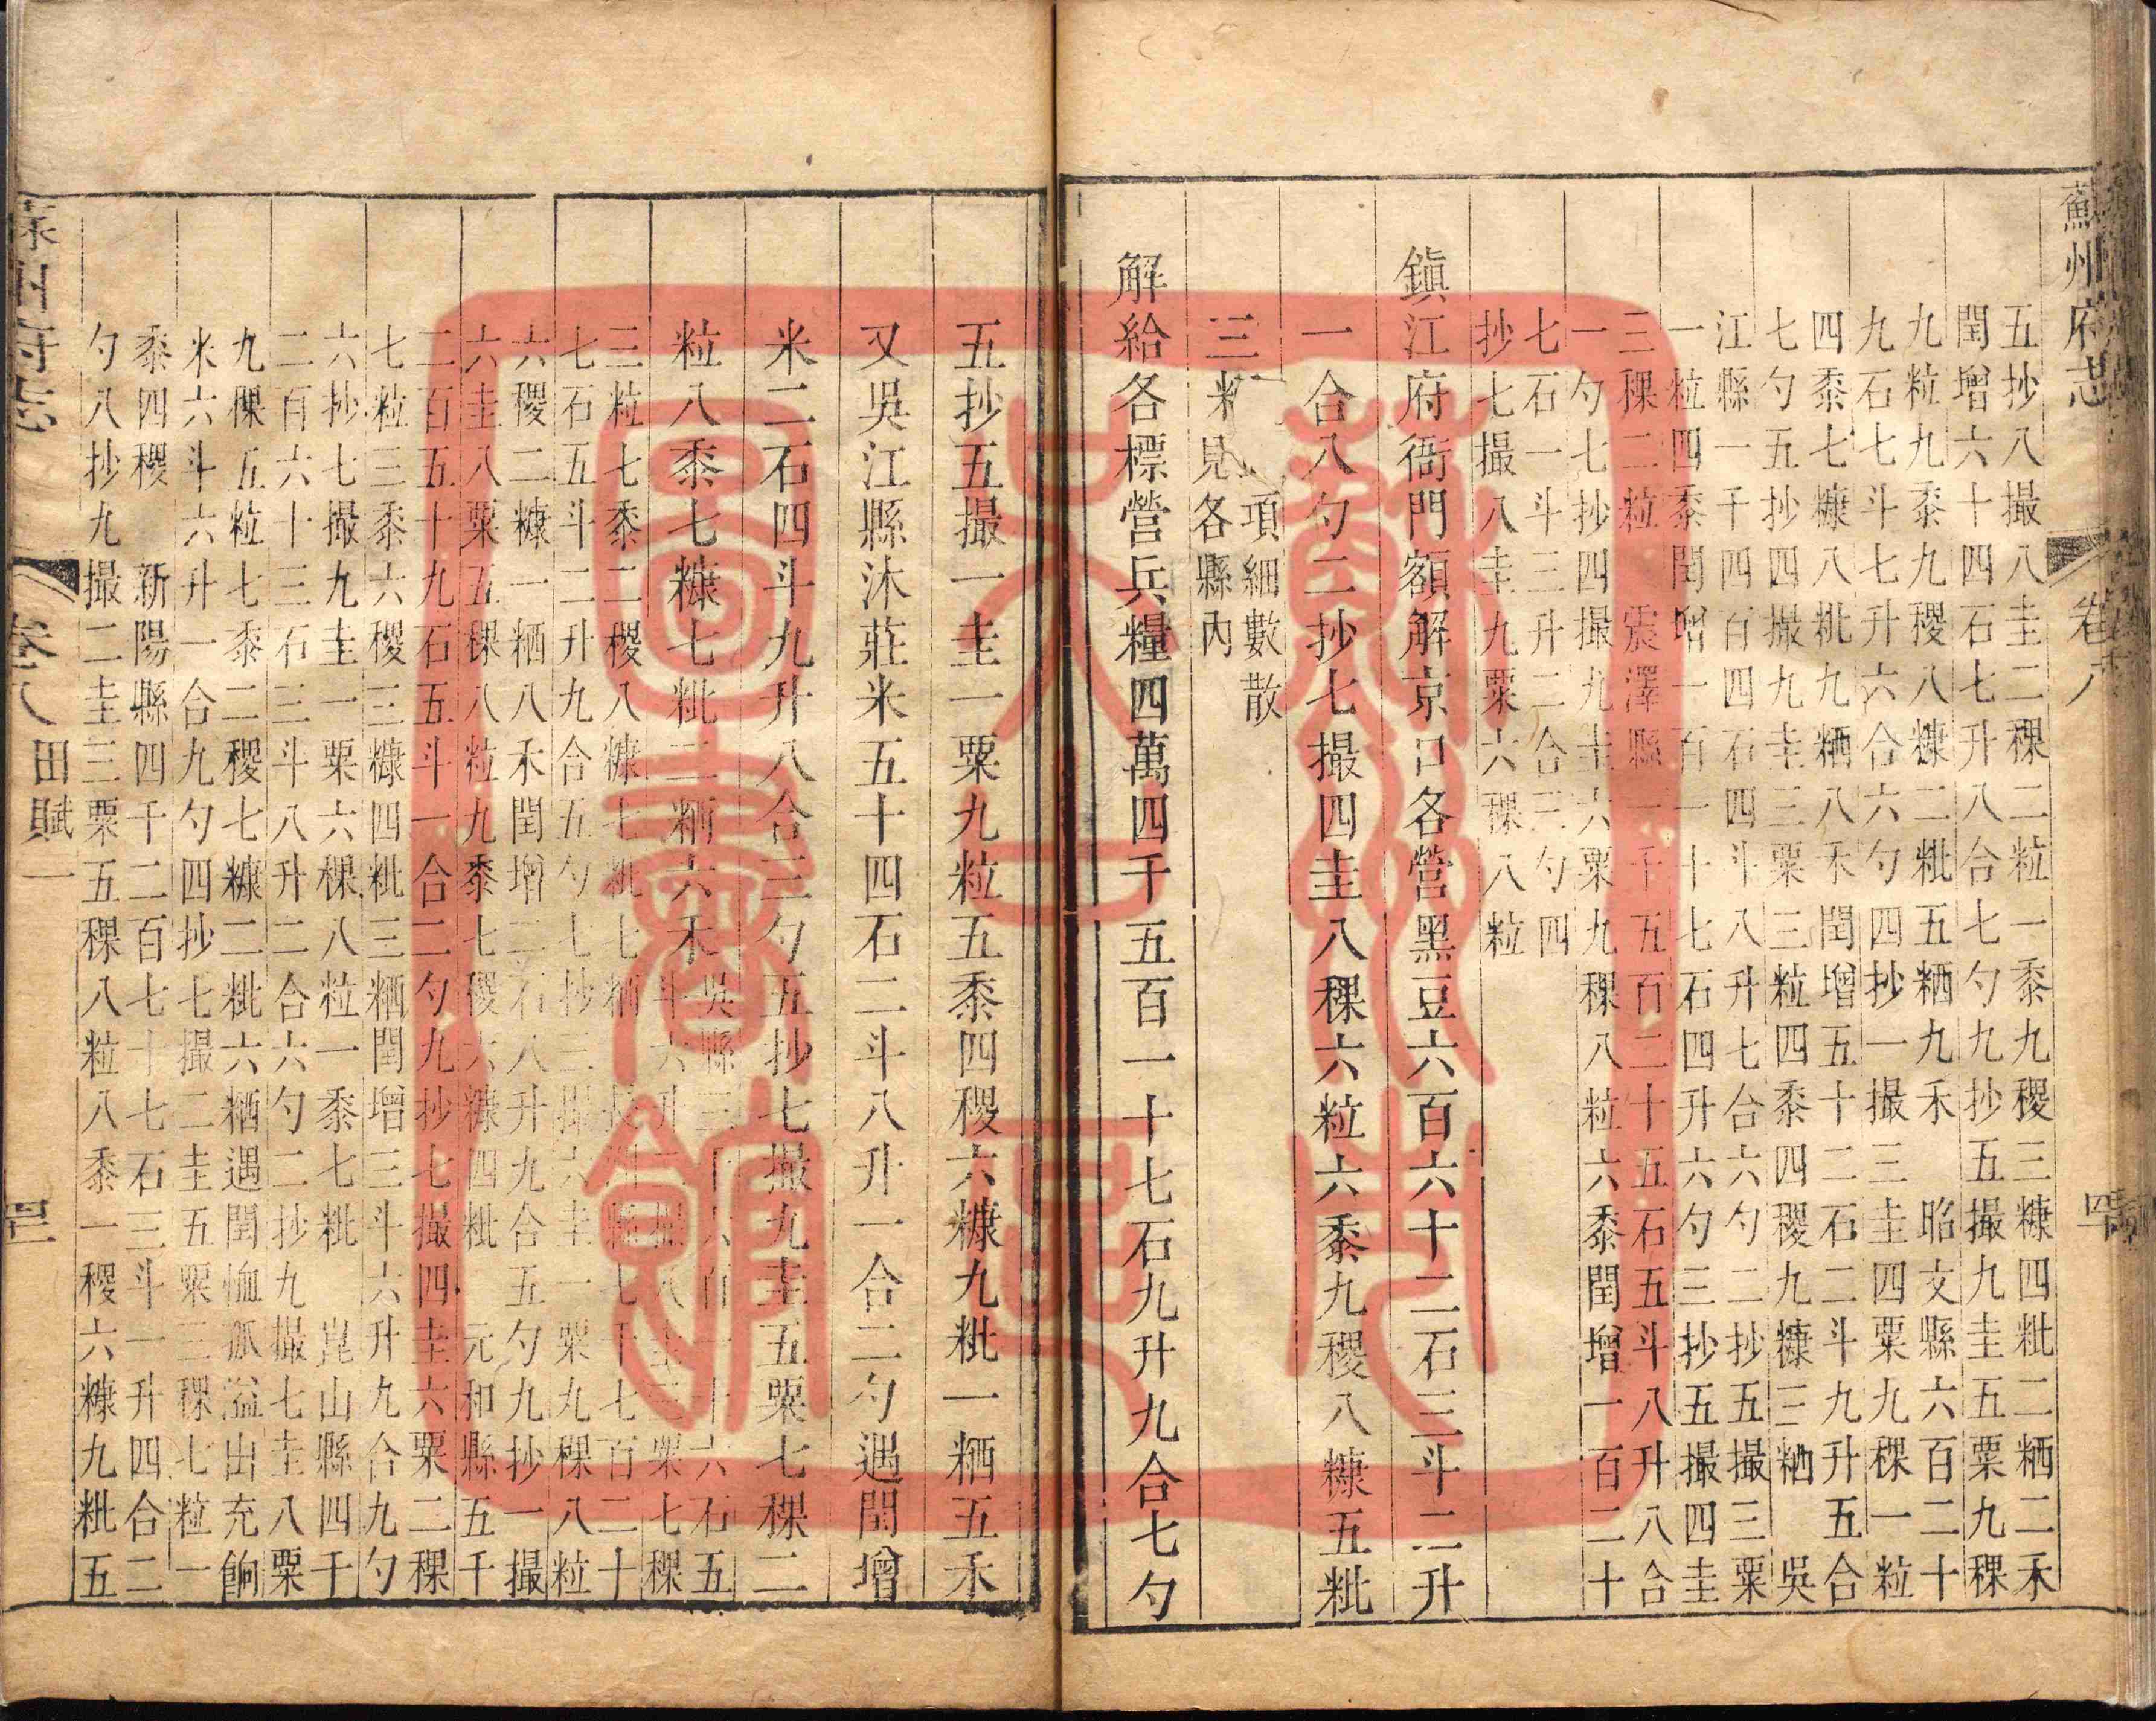 蘇州府志
卷八
五抄八撮八圭二稞二粒一黍九稷三糠四粃二粞二禾
閏增六十四石七升八合七勺九抄五撮九圭五粟九稞
九粒九黍九稷八糠二粃五粞九禾 昭文縣六百二十
九石七斗七升六合六勺四抄一撮三圭四粟九稞一粒
四黍七糠八粃九粞八禾閏增五十二石二斗九升五合
七勺五抄四撮九圭三粟三粒四黍四稷九糠三粞 吳
江縣一千四百四石四斗八升七合六勺二抄五撮三粟
一粒四黍閏增一百一十七石四升六勺三抄五撮四圭
三稞二粒 震澤縣一千五百二十五石五斗八升八合
一勺七抄四撮九圭六粟九稞八粒六黍閏增一百二十
七石一斗三升二合三勺四
抄七撮八圭九粟六稞八粒
鎮江府衙門額解京口各營黑豆六百六十二石三斗二升
一合八勺二抄七撮四圭八稞六粒六黍九稷八糠五粃
項細數散
見各縣內
解給各標營兵糧四萬四千五百一十七石九升九合七勺
五抄五撮一圭一粟九粒五黍四稷六糠九粃一粞五禾
又吳江縣沐莊米五十四石二斗八升一合二勺遇閏增
米二石四斗九升八合三勺五抄七撮九圭五粟七稞二
粒八黍七糠七粃二粞六禾
吳縣三
六石五
粟七稞
三粒七黍二稷八糠七粃七粞
七千七百二十
七石五斗二升九合五勺七抄三撮六圭一粟九稞八粒
六稷二糠一粞八禾閏增二石八升九合五勺九抄一撮
六圭八粟五稞八粒九黍七稷六糠四粃 元和縣五千
二百五十九石五斗一合二勺九抄七撮四圭六粟二稞
七粒三黍六稷三糠四粃三粞閏增三斗六升九合九勺
六抄七撮九圭一粟六稞八粒一黍七粃 崑山縣四千
二百六十三石三斗八升二合六勺二抄九撮七圭八粟
九稞五粒七黍二稷七糠二粃六粞遇閏恤孤溢出充餉
米六斗六升一合九勺四抄七撮二圭五粟三稞七粒一
黍四稷 新陽縣四千二百七十七石三斗一升四合二
勺八抄九撮二圭三粟五稞八粒八黍一稷六糠九粃五
卷八 田賦一
蘇州大學圖書館